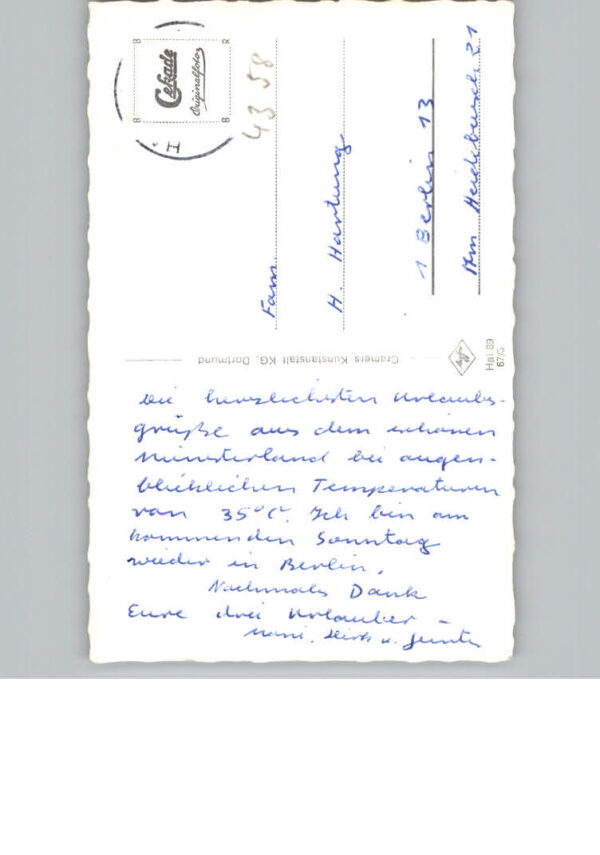 Die herzlichsten Urlaubs-
grüße aus dem schönen
Münsterland bei augen-
blicklichen Temperaturen
von 35°C. Ich bin am
kommenden Sonntag
wieder in Berlin.
Nochmals Dank
Eure drei Urlauber –
u. Günter
Cramers Kunstanstalt KG, Dortmund
Hal 89
67/5
B R
Cekade
Originalfoto
B B
H
4358
Fam.
H. Hartung
1 Berlin 13
Am Heidebusch 21